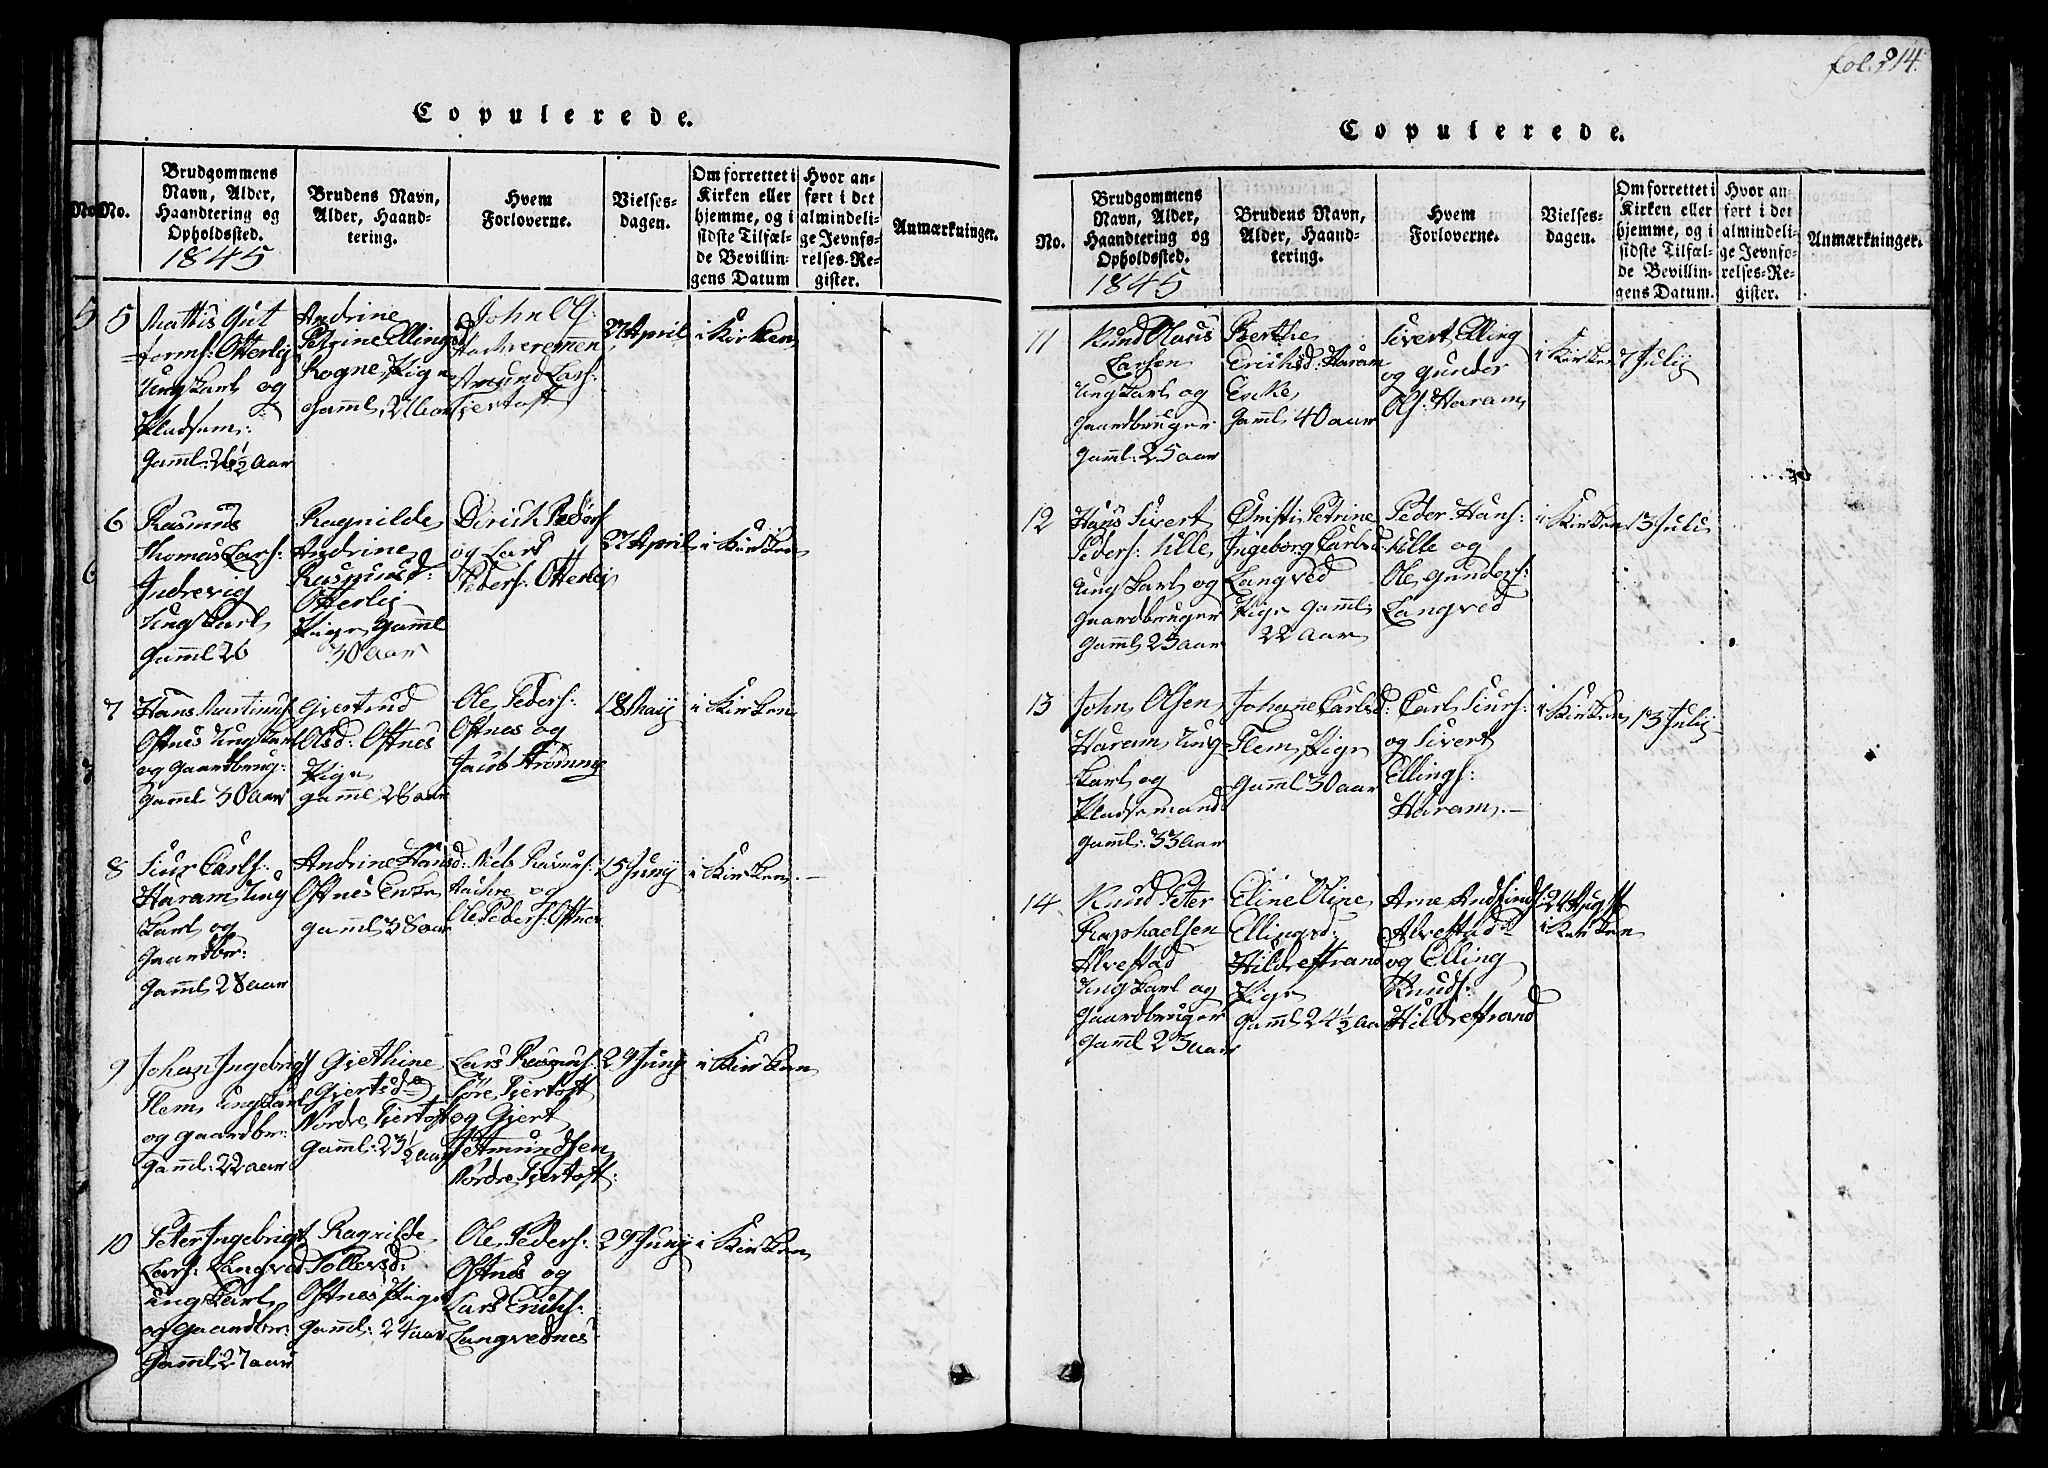 Copulerede.
No.
No.
Brudgommens
Navn, Alder,
Haandtering og
Opholdssted.
1845
Brudens Navn,
Alder, Haand-
tering.
Hvem
Forloverne.
Vielses-
dagen.
Om forrettet i
Kirken eller
hjemme, og i
sidste Tilfæl-
de Bevillin-
gens Datum
Hvor an-
ført i det
almindeli-
ge Jevnfø-
relses-Re-
gister.
Anmærkninger.
5
5
Mattis Gut
formsˢ: Otterlej
Ungkarl og
Pladsem:
Gaml: 26½ Aar
Andrine
Petrine Ellingsd
Rogne, Pige
Gaml, 21 Aar
John Ols:
Aachremen
Amund Lars:
Fjertoft
27 April
i Kirken
6
6
Rasmus
Thomas Lars:
Indrevig
Ungkarl
Gaml 26
Ragnilde
Andrine
Rasmusd:
Otterlej
Pige Gaml
30 Aar
Dirich Peders
og Lars
Peders: Otterlej
27 April
i Kirken
7
7
Hans Martinus
Oftnes Ungkarl
og Gaardbrug:
Gaml 30 Aar
Gjertrud
Olsd: Oftnes
Pige
Gaml 26 aar
Ole Peders:
Oftnes og
Jacob Strømme
18 Maij
i Kirken
8
Siur Carls:
Haram Ung
karl og
Gaardbr:
Gaml 28 aar
Andrine Hansd:
Oftnes Enke
Gaml 38 aar
Niels Rasmus:
Aachre og
Ole Peders: Oftnes
15 Junij
i Kirken
9
Johan Ingebrigt
Flem Ungkarl
og Gaardbr:
Gaml: 22 aar
Gjethine
Gjertsd
Nordre Fjertoft
Gaml: 23½ aar
Lars Rasmus:
Søre Fjertoft
og Gjert
Amundsen
Nordre Fjertoft:
29 Junij
i Kirken
10
Peter Ingebrigt
Lars: Langved
Ungkarl
og Gaardbr:
Gaml: 27 aar
Ragnilde
Tollevsd:
Oftnes Pige
Gaml: 24 aar
Ole Peders:
Oftnes og
Lars Erichs:
Langvednes
29 Junij
i Kirken
fol. 214.
Copulerede.
No.
Brudgommens
Navn, Alder,
Haandtering og
Opholdssted.
1845
Brudens Navn,
Alder, Haand-
tering.
Hvem
Forloverne.
Vielses-
dagen.
Om forrettet i
Kirken eller
hjemme, og i
sidste Tilfæl-
de Bevillin-
gens Datum.
Hvor an-
ført i det
almindeli-
ge Jevnfø-
relses-Re-
gister.
Anmærkninger.
11
Knud Olaus
Larsen
Ungkarl og
Gaardbruger
Gaml: 25 aar
Berthe
Erichsd: Haram
Enke
Gaml 40 aar
Sivert Elling
og Gunder
Ols: Haram
i Kirken
7 Julij
12
Hans Sivert
Peders: Ulle
Ungkarl og
Gaardbruger
Gaml 23 aar
Christi Petrine
Ingeborg Carlsd:
Langved
Pige Gaml
22 Aar
Peder Hans:
Ulle og
Ole Gunders:
Langved
i Kirken
13 Juli
13
John Olsen
Haram Ung
karl og
Pladsemand
Gaml: 33 Aar
Johane Carlsd:
Flem Pige
Gaml 30 aar
Carl Siurs:
og Sivert
Ellings:
Haram.
i Kirken
13 Julij
14
Knud Peter
Raphaelsen
Alvestad
Ungkarl og
Gaardbruger
Gaml 23 aar
Eline Oline
Ellingsd:
Hildrestrand
Pige
Gaml 24½ aar
Arne
Alvestad
og Elling
Knuds:
Hildrestrand
24 August
i Kirken